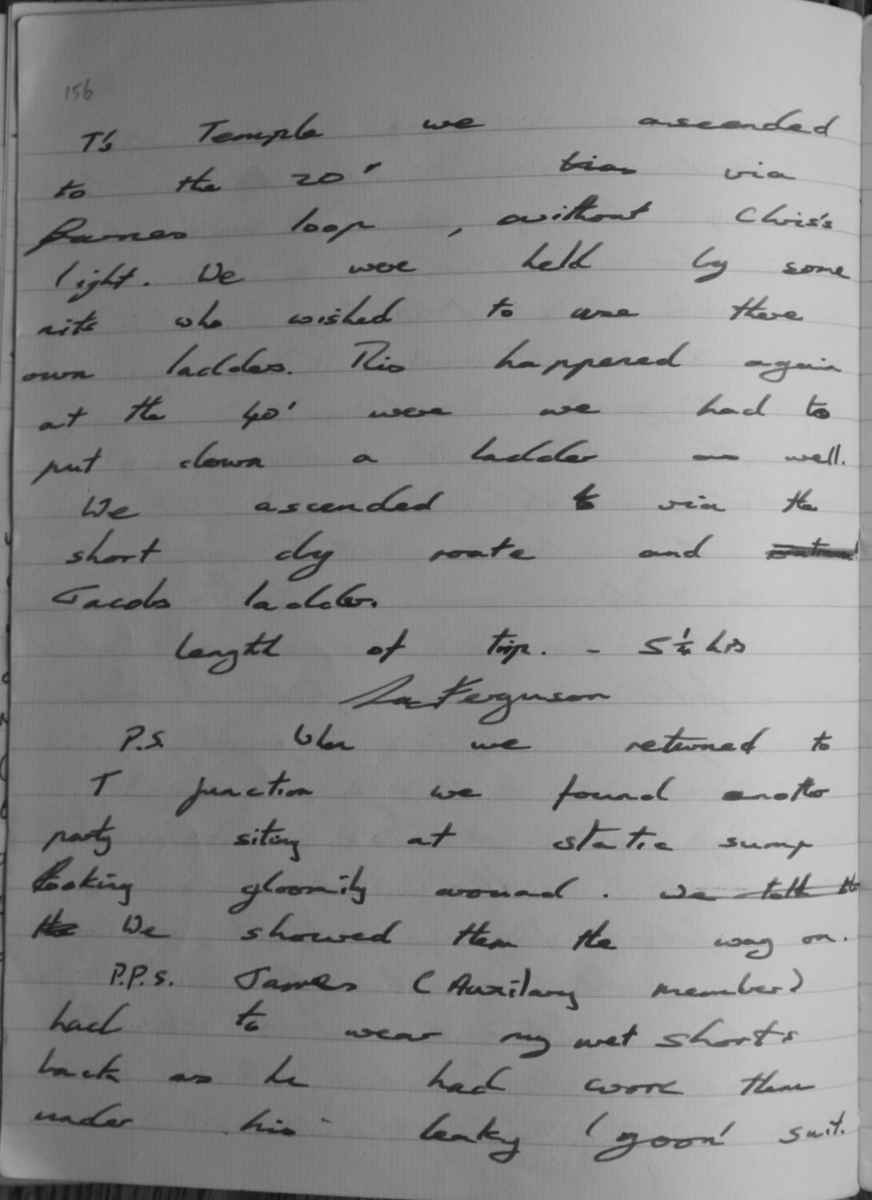 156
T's Temple we ascended
to the 20' via
Barnes loop, without Chris's
light. We were held by some
nits who wished to use there
own ladders. This happened again
at the 40' were we had to
put down a ladder as well.
We ascended via the
short dry route and
Jacobs ladder.
Length of trip. - 5¼ hrs
Ferguson
P.S. When we returned to
T junction we found another
party siting at static sump
looking gloomily around. We told th
the We showed them the way on.
P.P.S. James (Auxilary member)
had to wear my wet shorts
back as he had wore them
under his leaky 'goon' suit.